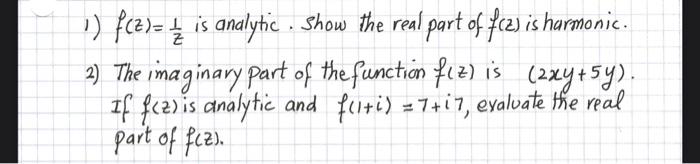 1) f(z)= 1/z is analytic. Show the real part of f(z) is harmonic.
2) The imaginary part of the function f(z) is (2xy+5y).
If f(z) is analytic and f(1+i) = 7+i7, evaluate the real
part of f(z).